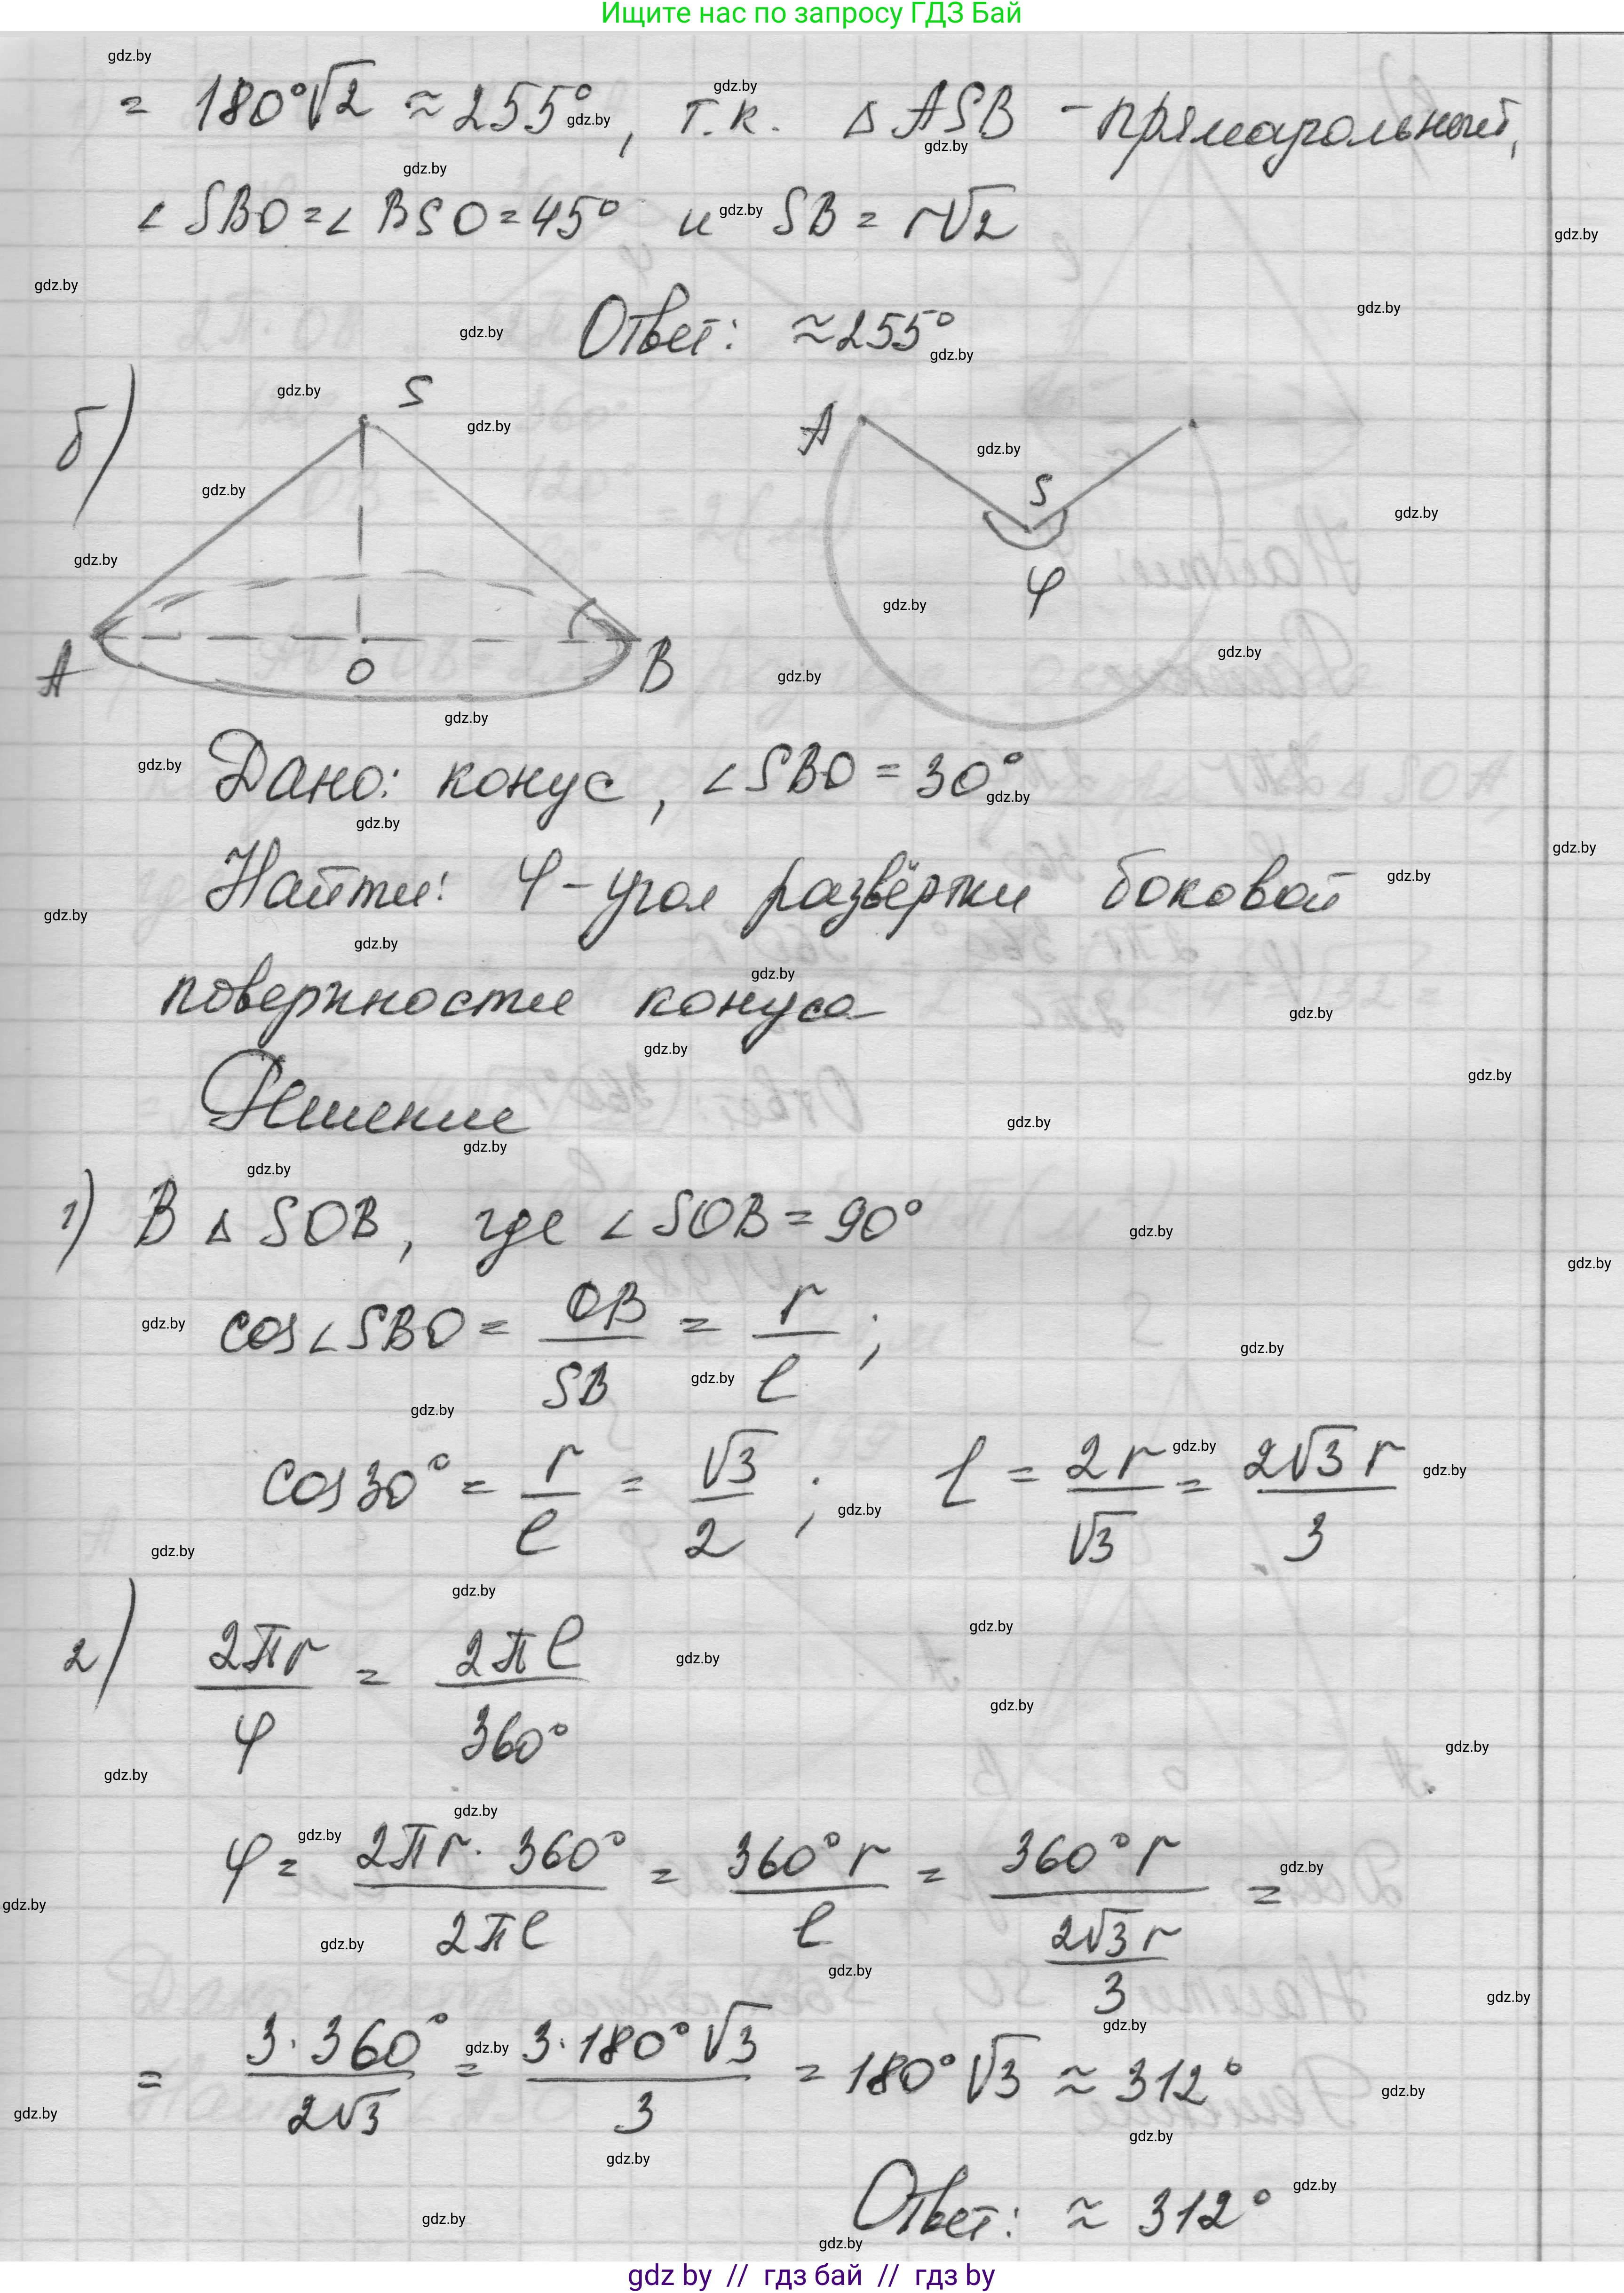 Ищите нас по запросу ГДЗ Бай
= 180°√2 ≈ 255°, т.к. △ ASB - прямоугольный,
∠ SBO = ∠ BSO = 45° и SB = r√2
Ответ: ≈ 255°
б)
S
A
O
B
A
S
φ
Дано: конус, ∠SBO = 30°
Найти: φ - угол развёртки боковой
поверхности конуса
Решение
1) В △ SOB, где ∠ SOB = 90°
cos∠SBO = OB/SB = r/l;
cos30° = r/l = √3/2; l = 2r/√3 = 2√3 r/3
2) 2πr/φ = 2πl/360°
φ = 2πr · 360°/2πl = 360° r/l = 360° r/(2√3 r/3) =
= 3 · 360°/2√3 = 3 · 180° √3/3 = 180° √3 ≈ 312°
Ответ: ≈ 312°
gdz by // гдз бай // гдз by